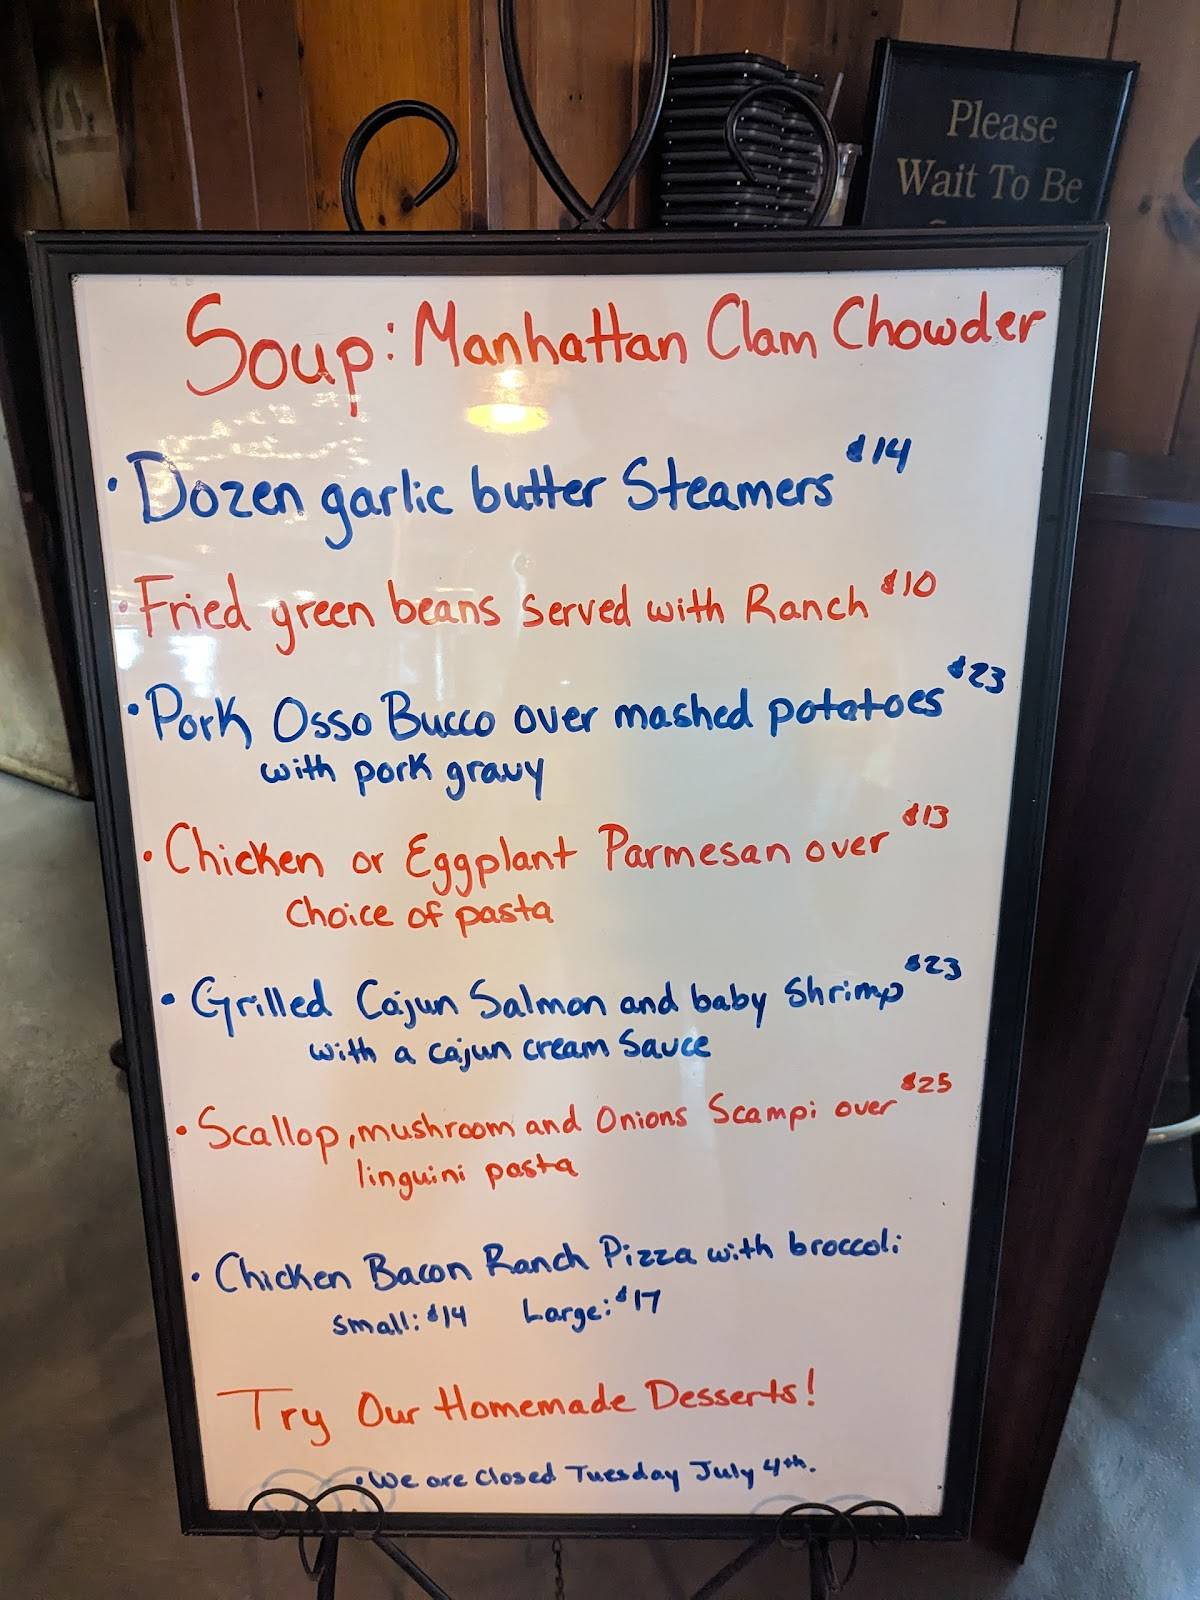 Please
Wait To Be
Soup: Manhattan Clam Chowder
• Dozen garlic butter Steamers $14
• Fried green beans served with Ranch $10
• Pork Osso Bucco over mashed potatoes $23
with pork gravy
• Chicken or Eggplant Parmesan over $13
Choice of pasta
• Grilled Cajun Salmon and baby Shrimp $23
with a cajun cream Sauce
• Scallop, mushroom and Onions Scampi over $25
linguini pasta
• Chicken Bacon Ranch Pizza with broccoli
Small: $14 Large: $17
Try Our Homemade Desserts!
• We are Closed Tuesday July 4th.